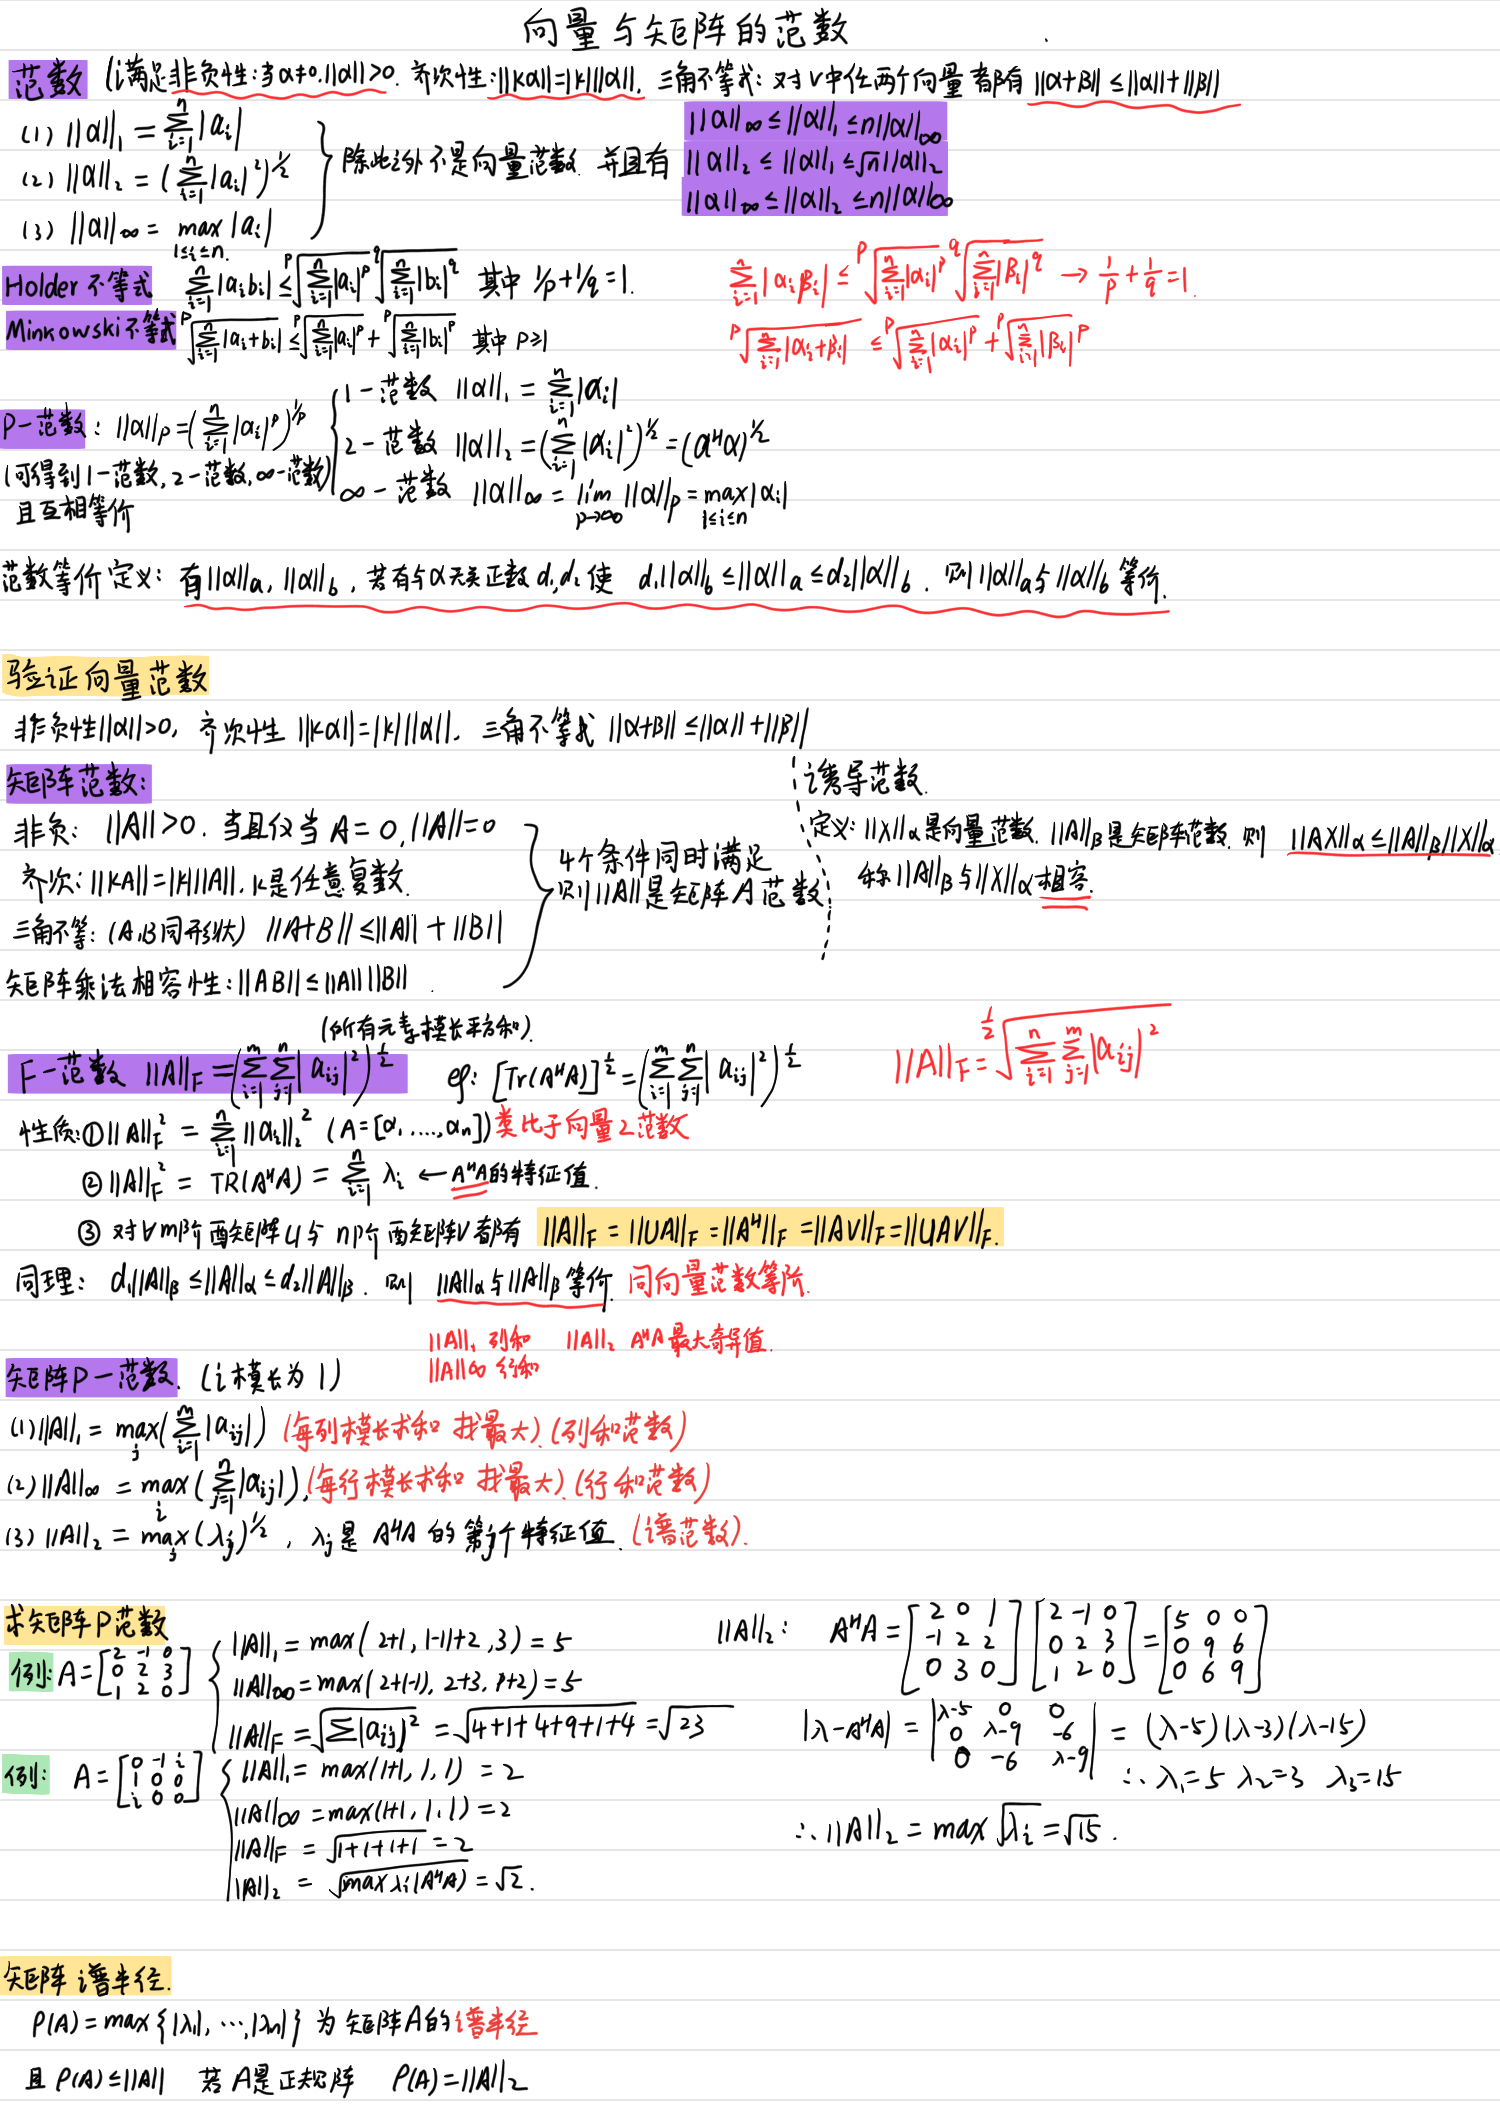 向量与矩阵的范数
范数 (满足非负性:当α≠0.||α||>0. 齐次性:||kα||=|k|||α||. 三角不等式: 对V中任两个向量都有 ||α+β|| ≤||α||+||β||
(1) ||α||₁ = Σ_{i=1}^{n} |a_i|
(2) ||α||₂ = (Σ_{i=1}^{n} |a_i|²)^{1/2}
(3) ||α||_∞ = max_{1≤i≤n.} |a_i|
除此之外不是向量范数. 并且有
||α||_∞ ≤ ||α||₁ ≤ n||α||_∞
||α||₂ ≤ ||α||₁ ≤ √n||α||₂
||α||_∞ ≤ ||α||₂ ≤ n||α||_∞
Holder 不等式 Σ_{i=1}^{n} |a_i b_i| ≤ ᵖ√(Σ_{i=1}^{n} |a_i|^p) ᑫ√(Σ_{i=1}^{n} |b_i|^q) 其中 1/p+1/q=1.
Σ_{i=1}^{n} |α_i β_i| ≤ ᵖ√(Σ_{i=1}^{n} |α_i|^p) ᑫ√(Σ_{i=1}^{n} |β_i|^q) → 1/p + 1/q =1.
Minkowski不等式 ᵖ√(Σ_{i=1}^{n} |a_i+b_i|) ≤ ᵖ√(Σ_{i=1}^{n} |a_i|^p) + ᵖ√(Σ_{i=1}^{n} |b_i|^p) 其中 P≥1
ᵖ√(Σ_{i=1}^{n} |α_i+β_i|) ≤ ᵖ√(Σ_{i=1}^{n} |α_i|^p) + ᵖ√(Σ_{i=1}^{n} |β_i|^p)
P-范数: ||α||_p = (Σ_{i=1}^{n} |α_i|^p)^{1/p}
(可得到1-范数, 2-范数, ∞-范数)
且互相等价
1-范数 ||α||₁ = Σ_{i=1}^{n} |α_i|
2-范数 ||α||₂ = (Σ_{i=1}^{n} |α_i|²)^{1/2} = (α^H α)^{1/2}
∞-范数 ||α||_∞ = lim_{p→∞} ||α||_p = max_{1≤i≤n} |α_i|
范数等价定义: 有||α||_a, ||α||_b, 若有与α无关正数 d₁,d₂ 使 d₁||α||_b ≤||α||_a ≤d₂||α||_b. 则||α||_a与||α||_b 等价.
验证向量范数
非负性||α||>0, 齐次性 ||kα||=|k|||α||. 三角不等式 ||α+β|| ≤||α||+||β||
矩阵范数:
非负: ||A||>0. 当且仅当 A=0,||A||=0
齐次: ||kA||=|k|||A||. k是任意复数.
三角不等: (A,B同形状) ||A+B|| ≤||A|| + ||B||
矩阵乘法相容性: ||AB|| ≤ ||A|| ||B|| .
4个条件同时满足
则||A||是矩阵A范数
诱导范数.
定义: ||X||_α 是向量范数. ||A||_β 是矩阵范数. 则 ||AX||_α ≤||A||_β||X||_α
称||A||_β与||X||_α相容.
(所有元素模长平方和).
F-范数 ||A||_F = (Σ_{i=1}^{m} Σ_{j=1}^{n} |a_{ij}|²)^{1/2} 即: [Tr(A^H A)]^{1/2} = (Σ_{i=1}^{m} Σ_{j=1}^{n} |a_{ij}|²)^{1/2}
||A||_F = ^{1/2}√(Σ_{i=1}^{n} Σ_{j=1}^{m} |a_{ij}|²)
性质: ①||A||_F² = Σ_{i=1}^{n} ||α_i||₂² (A=[α₁....,α_n]) 类比于向量2范数
② ||A||_F² = TR(A^H A) = Σ_{i=1}^{n} λ_i ← A^H A的特征值.
③ 对∀m阶酉矩阵U与n阶酉矩阵V都有 ||A||_F = ||UA||_F = ||A^H||_F = ||AV||_F = ||UAV||_F.
同理: d₁||A||_β ≤||A||_α ≤d₂||A||_β. 则 ||A||_α与||A||_β等价. 同向量范数等价.
||A||₁ 列和 ||A||₂ A^H A 最大奇异值.
||A||_∞ 行和
矩阵P-范数. (i模长为1)
(1)||A||₁ = max_j (Σ_{i=1}^{m} |a_{ij}|) (每列模长求和 找最大).(列和范数)
(2)||A||_∞ = max_i (Σ_{j=1}^{n} |a_{ij}|).(每行模长求和 找最大).(行和范数)
(3)||A||₂ = max_j (λ_j)^{1/2}, λ_j是 A^H A 的第j个特征值.(谱范数).
求矩阵P范数
例: A = [2 -1 0; 0 2 3; 1 2 0]
||A||₁ = max( 2+1, |-1|+2+2, 3) = 5
||A||_∞ = max( 2+|-1|, 2+3, 1+2) = 5
||A||_F = √(Σ|a_{ij}|²) = √(4+1+4+9+1+4) = √23
||A||₂: A^H A = [2 0 1; -1 2 2; 0 3 0] [2 -1 0; 0 2 3; 1 2 0] = [5 0 0; 0 9 6; 0 6 9]
|λ-A^H A| = |λ-5 0 0; 0 λ-9 -6; 0 -6 λ-9| = (λ-5)(λ-3)(λ-15)
∴ λ₁=5 λ₂=3 λ₃=15
∴ ||A||₂ = max √λ_i = √15.
例: A = [0 -1 i; 1 0 0; i 0 0]
||A||₁ = max(1+1, 1, 1) = 2
||A||_∞ = max(1+1, 1, 1) = 2
||A||_F = √(1+1+1+1) = 2
||A||₂ = √(max λ_i(A^H A)) = √2.
矩阵谱半径.
ρ(A) = max{|λ₁|, ⋯,|λ_n|} 为矩阵A的谱半径
且 ρ(A) ≤||A|| 若A是正规阵 ρ(A)=||A||₂